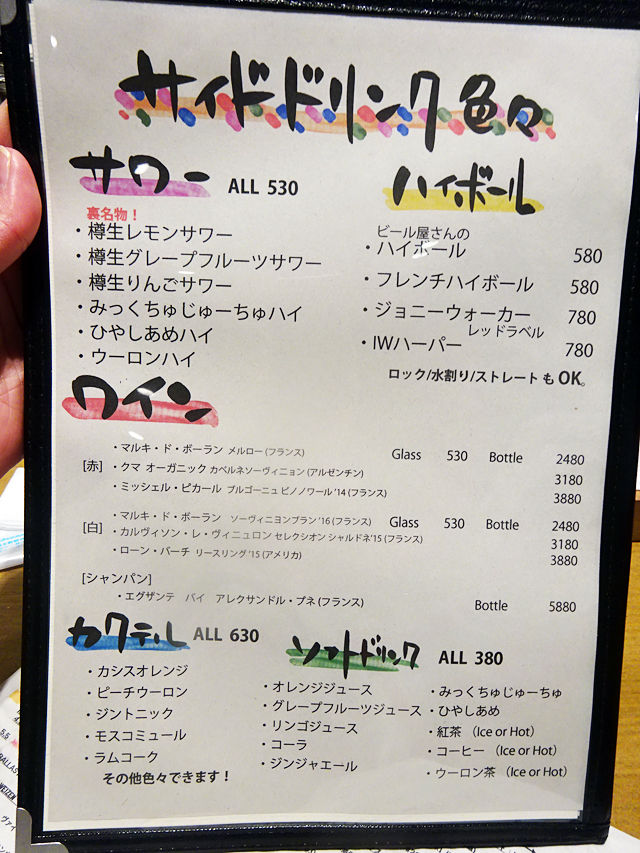 サイドドリンク 色々
サワー ALL 530
裏名物！
・樽生レモンサワー
・樽生グレープフルーツサワー
・樽生りんごサワー
・みっくちゅじゅーちゅハイ
・ひやしあめハイ
・ウーロンハイ
ハイボール
ビール屋さんの
・ハイボール 580
・フレンチハイボール 580
・ジョニーウォーカー 780
レッドラベル
・IWハーパー 780
ロック/水割り/ストレート も OK。
ワイン
[赤]
・マルキ・ド・ボーラン メルロー (フランス) Glass 530 Bottle 2480
・クマ オーガニック カベルネソーヴィニョン (アルゼンチン) 3180
・ミッシェル・ピカール ブルゴーニュ ピノノワール '14 (フランス) 3880
[白]
・マルキ・ド・ボーラン ソーヴィニヨンブラン '16 (フランス) Glass 530 Bottle 2480
・カルヴィソン・レ・ヴィニュロン セレクシオン シャルドネ'15 (フランス) 3180
・ローン・バーチ リースリング '15 (アメリカ) 3880
[シャンパン]
・エグザンテ バイ アレクサンドル・プネ (フランス) Bottle 5880
カクテル ALL 630
・カシスオレンジ
・ピーチウーロン
・ジントニック
・モスコミュール
・ラムコーク
その他色々できます！
ソフトドリンク ALL 380
・オレンジジュース
・グレープフルーツジュース
・リンゴジュース
・コーラ
・ジンジャエール
・みっくちゅじゅーちゅ
・ひやしあめ
・紅茶 （Ice or Hot）
・コーヒー （Ice or Hot）
・ウーロン茶 （Ice or Hot）